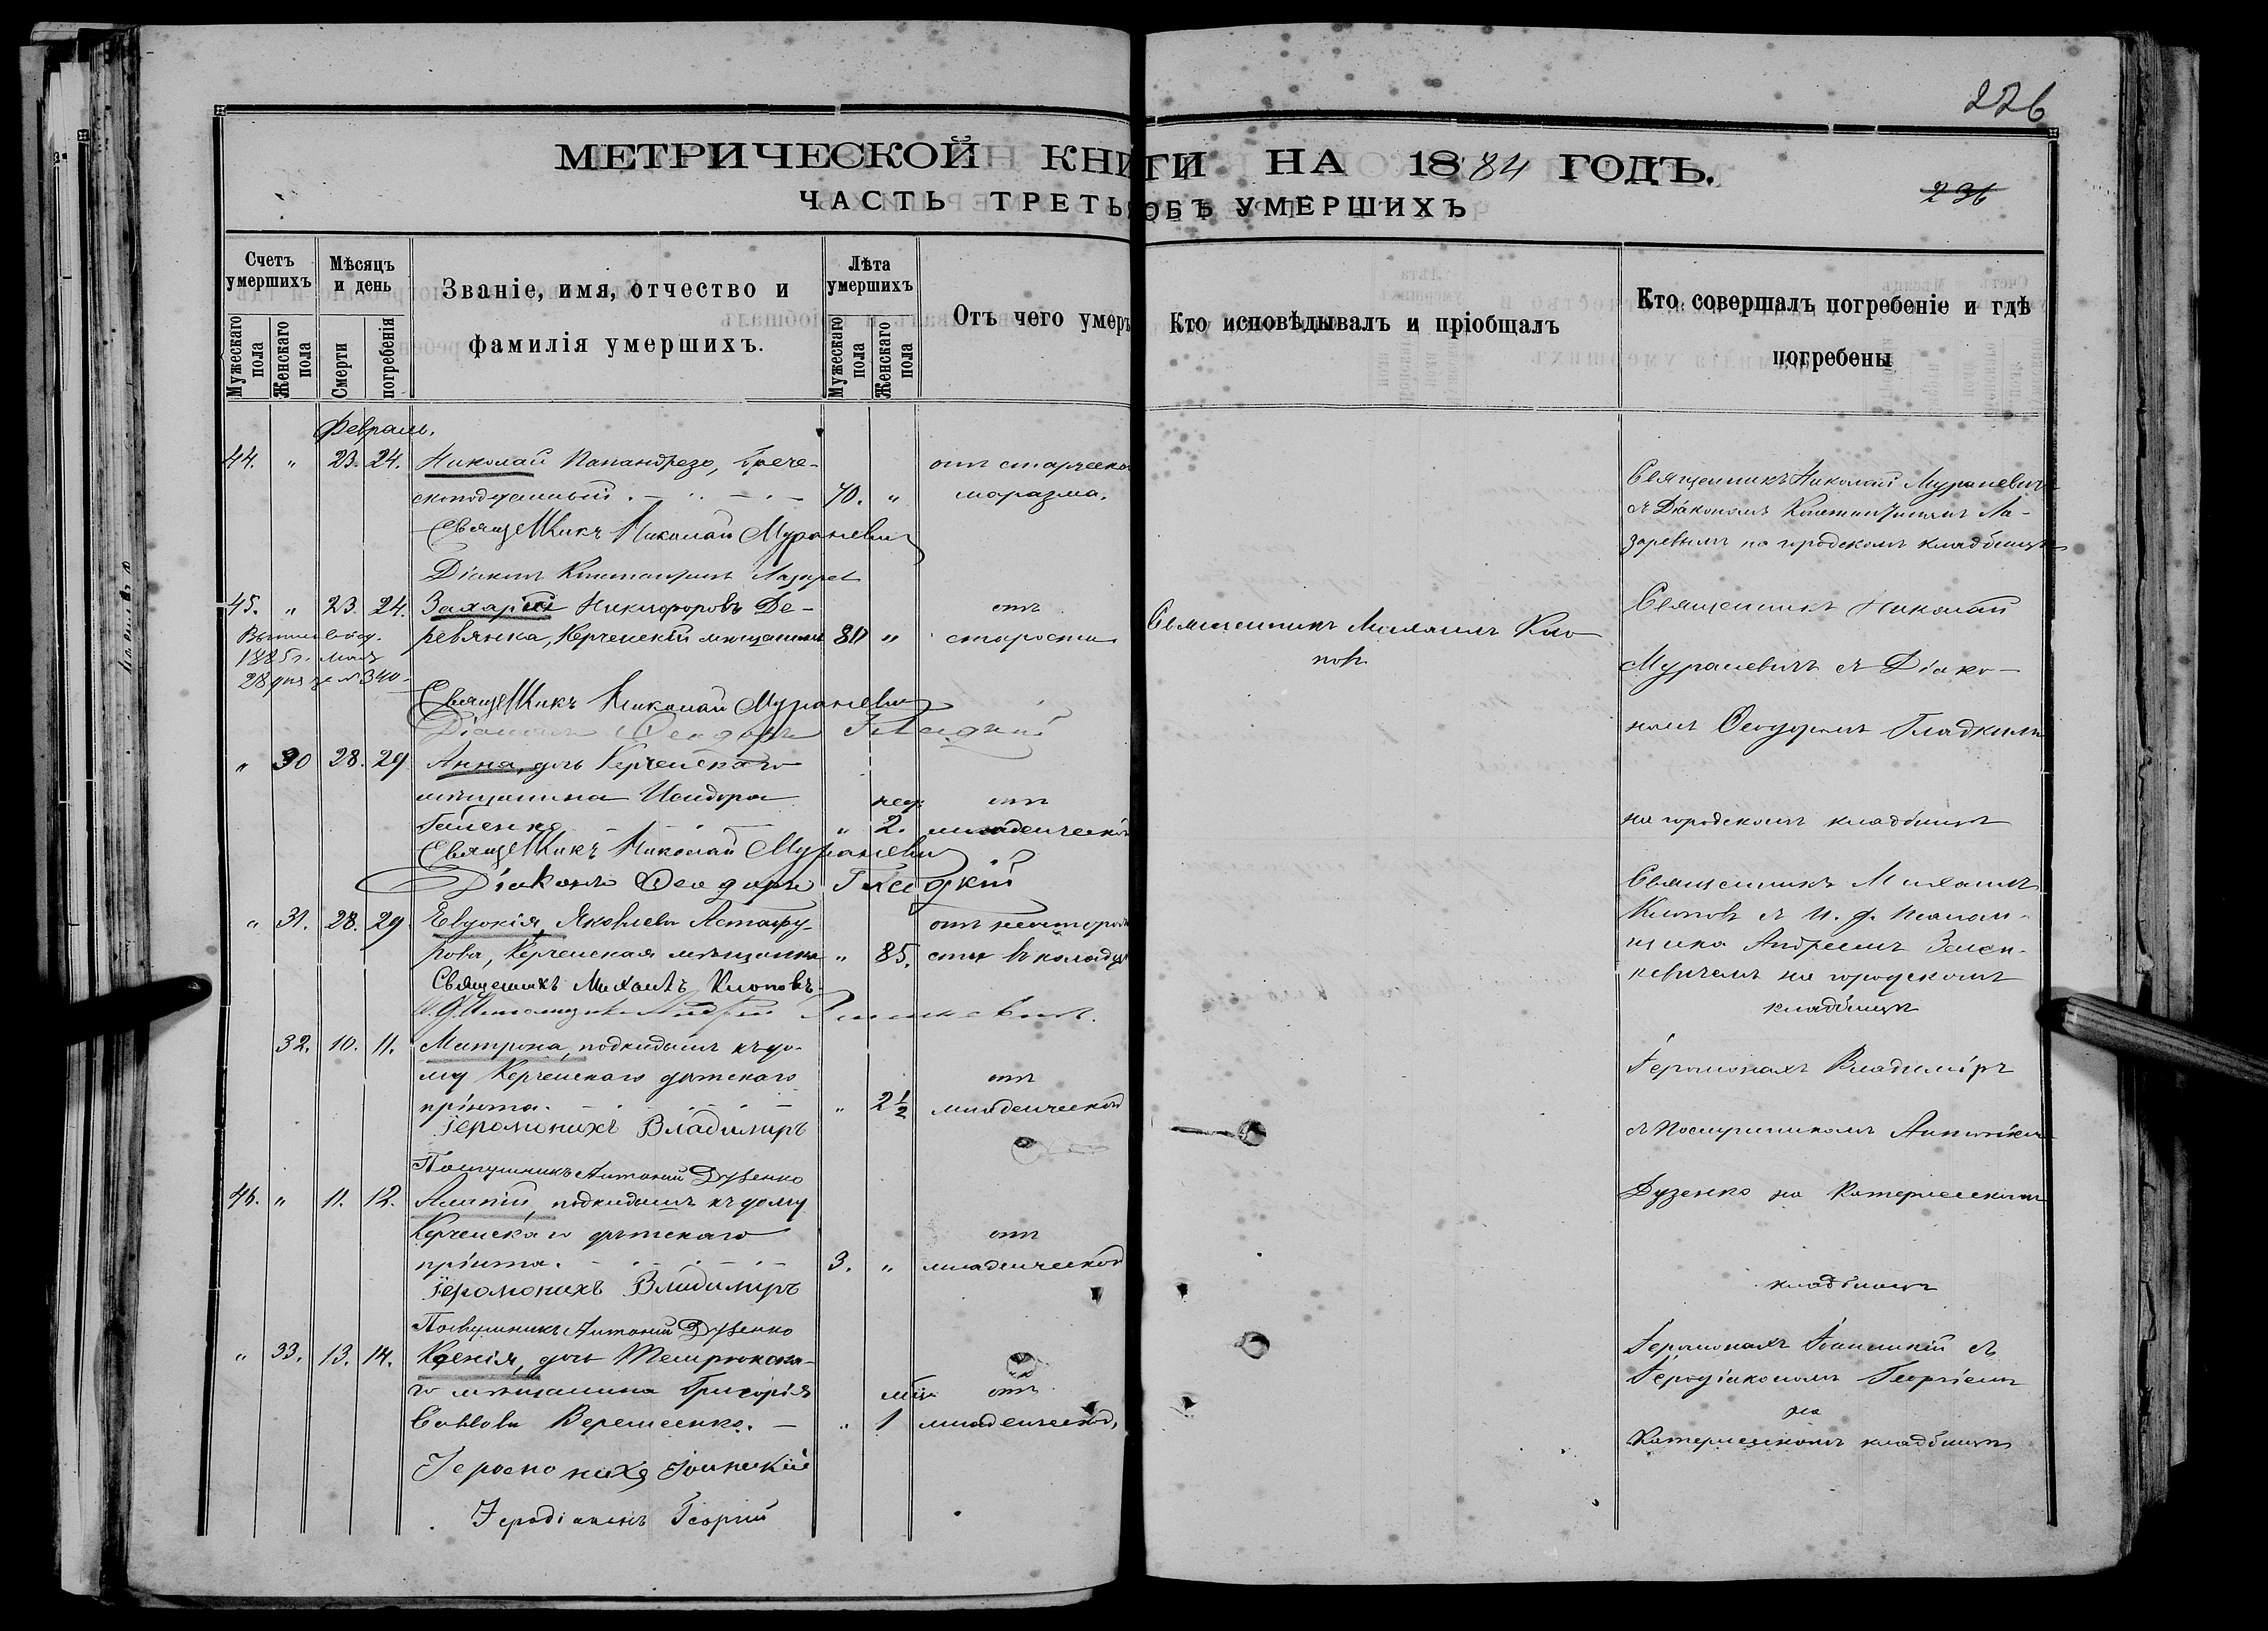 226
МЕТРИЧЕСКОЙ КНИГИ НА 1884 ГОДЪ.
ЧАСТЬ ТРЕТЬЯ ОБЪ УМЕРШИХЪ
236
Счетъ умершихъ
Мужескаго пола
Женскаго пола
Мѣсяцъ и день
Смерти
погребенія
Званіе, имя, отчество и
фамилія умершихъ.
Лѣта умершихъ
Мужескаго пола
Женскаго пола
Отъ чего умеръ
Кто исповѣдывалъ и пріобщалъ
Кто совершалъ погребеніе и гдѣ
погребены
Февраль.
44. " 23. 24. Николай Папандрезо, Грече-
скоподданный. 70. "
отъ старческо
маразма.
Священникъ Николай Мураневичъ
Діаконъ Константинъ Лазарев
Священникъ Николай Мураневичъ
съ Діакономъ Константиномъ Ла-
заревымъ на городскомъ кладбищѣ
45. " 23. 24. Захарій Никифоровъ Де-
ревянка, Керченскій мѣщанинъ 80 "
отъ
старости
1885 г. мая
28 дня за № 340
Священникъ Николай Мураневичъ
Діаконъ Ѳеодоръ Гладкій
Священникъ Михаилъ Кло
повъ
Священникъ Николай
Мураневичъ съ Діако-
номъ Ѳеодоромъ Гладкимъ
на городскомъ кладбищѣ
" 30 28. 29. Анна, дочь Керченскаго
мѣщанина Исидора
нед.
" 2.
отъ
младенческой
Священникъ Николай Мураневичъ
Діаконъ Ѳеодоръ Гладкій
" 31. 28. 29. Евдокія Яковлева Астафу-
рова, Керченская мѣщанка " 85.
Священникъ Михаилъ Клоповъ
Священникъ Михаилъ
Клоповъ съ и. д. псалом-
щика Андреемъ Зен-
кевичемъ на городскомъ
кладбищѣ
32. 10. 11. Матрона, подкидышъ къ до-
му Керченскаго дѣтскаго
пріюта. " 2 1/2
отъ
младенческой
Іеромонахъ Владимиръ
Послушникъ Антоній Дузенко
Іеромонахъ Владиміръ
съ Послушникомъ Антоніемъ
Дузенко на Катерлескомъ
кладбищѣ
46. " 11. 12. подкидышъ къ дому
Керченскаго дѣтскаго
пріюта. 3. "
отъ
младенческой
Іеромонахъ Владимиръ
Послушникъ Антоній Дузенко
" 33. 13. 14. Ксенія, дочь Темрюкска-
го мѣщанина Григорія
Саввова Веремеенко.
мѣс.
" 1
отъ
младенческой,
Іеромонахъ Іоанникій
Іеродіаконъ Георгій
Іеромонахъ Іоанникій съ
Іеродіакономъ Георгіемъ
на
Катерлескомъ кладбищѣ